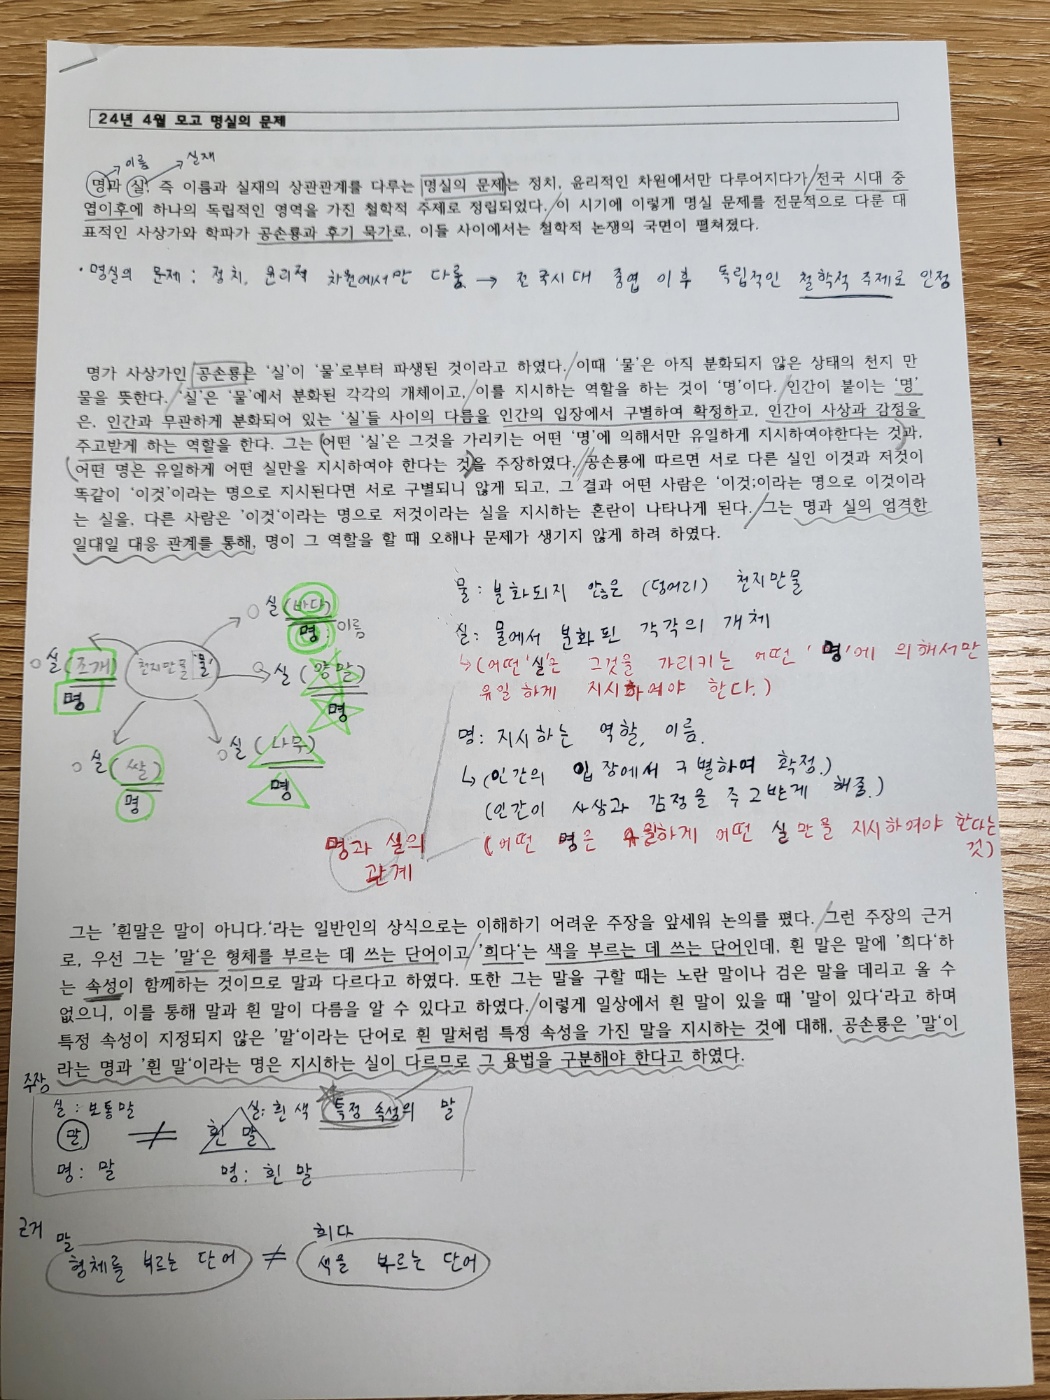 24년 4월 모고 명실의 문제
이름 실재
명과 실, 즉 이름과 실재의 상관관계를 다루는 명실의 문제는 정치, 윤리적인 차원에서만 다루어지다가 전국 시대 중
엽이후에 하나의 독립적인 영역을 가진 철학적 주제로 정립되었다. 이 시기에 이렇게 명실 문제를 전문적으로 다룬 대
표적인 사상가와 학파가 공손룡과 후기 묵가로, 이들 사이에서는 철학적 논쟁의 국면이 펼쳐졌다.
· 명실의 문제 : 정치, 윤리적 차원에서만 다룸 → 전국시대 중엽 이후 독립적인 철학적 주제로 인정
명가 사상가인 공손룡은 '실'이 '물'로부터 파생된 것이라고 하였다. 이때 '물'은 아직 분화되지 않은 상태의 천지 만
물을 뜻한다. '실'은 '물'에서 분화된 각각의 개체이고, 이를 지시하는 역할을 하는 것이 '명'이다. 인간이 붙이는 '명'
은, 인간과 무관하게 분화되어 있는 '실'들 사이의 다름을 인간의 입장에서 구별하여 확정하고, 인간이 사상과 감정을
주고받게 하는 역할을 한다. 그는 어떤 '실'은 그것을 가리키는 어떤 '명'에 의해서만 유일하게 지시하여야한다는 것과,
어떤 명은 유일하게 어떤 실만을 지시하여야 한다는 것을 주장하였다. 공손룡에 따르면 서로 다른 실인 이것과 저것이
똑같이 '이것'이라는 명으로 지시된다면 서로 구별되니 않게 되고, 그 결과 어떤 사람은 '이것;이라는 명으로 이것이라
는 실을, 다른 사람은 '이것'이라는 명으로 저것이라는 실을 지시하는 혼란이 나타나게 된다. 그는 명과 실의 엄격한
일대일 대응 관계를 통해, 명이 그 역할을 할 때 오해나 문제가 생기지 않게 하려 하였다.
실 (바다)
명 : 이름
실 (조개)
명
천지만물 '물'
실 (양말)
명
실 (쌀)
명
실 (나무)
명
물 : 분화되지 않은 (덩어리) 천지만물
실 : 물에서 분화된 각각의 개체
↳ (어떤 '실'은 그것을 가리키는 어떤 '명'에 의해서만
유일하게 지시하여야 한다.)
명 : 지시하는 역할, 이름.
↳ (인간의 입장에서 구별하여 확정.)
(인간이 사상과 감정을 주고받게 해줌.)
(어떤 명은 유일하게 어떤 실만을 지시하여야 한다는
것)
명과 실의
관계
그는 '흰말은 말이 아니다.'라는 일반인의 상식으로는 이해하기 어려운 주장을 앞세워 논의를 폈다. 그런 주장의 근거
로, 우선 그는 '말'은 형체를 부르는 데 쓰는 단어이고 '희다'는 색을 부르는 데 쓰는 단어인데, 흰 말은 말에 '희다'하
는 속성이 함께하는 것이므로 말과 다르다고 하였다. 또한 그는 말을 구할 때는 노란 말이나 검은 말을 데리고 올 수
없으니, 이를 통해 말과 흰 말이 다름을 알 수 있다고 하였다. 이렇게 일상에서 흰 말이 있을 때 '말이 있다'라고 하며
특정 속성이 지정되지 않은 '말'이라는 단어로 흰 말처럼 특정 속성을 가진 말을 지시하는 것에 대해, 공손룡은 '말'이
라는 명과 '흰 말'이라는 명은 지시하는 실이 다르므로 그 용법을 구분해야 한다고 하였다.
주장
실 : 보통말 실 : 흰색 특정 속성의 말
말 ≠ 흰 말
명 : 말 명 : 흰 말
근거
말 희다
형체를 부르는 단어 ≠ 색을 부르는 단어